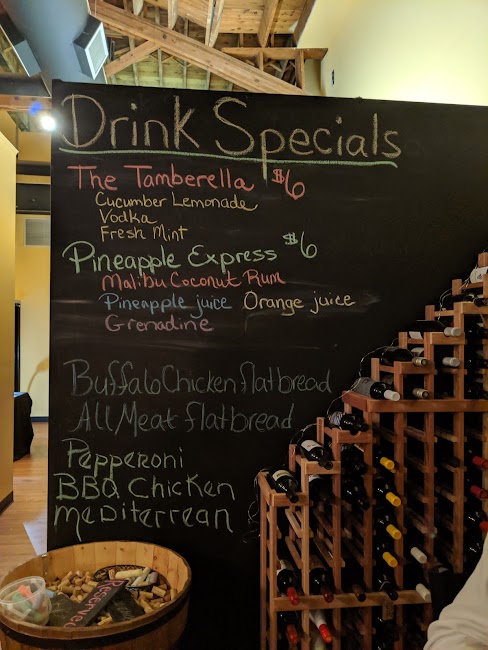 Drink Specials
The Tamberella $6
Cucumber Lemonade
Vodka
Fresh Mint
Pineapple Express $6
Malibu Coconut Rum
Pineapple juice Orange juice
Grenadine
Buffalo Chicken flatbread
All Meat flatbread
Pepperoni
BBQ Chicken
mediterrean
Reserved